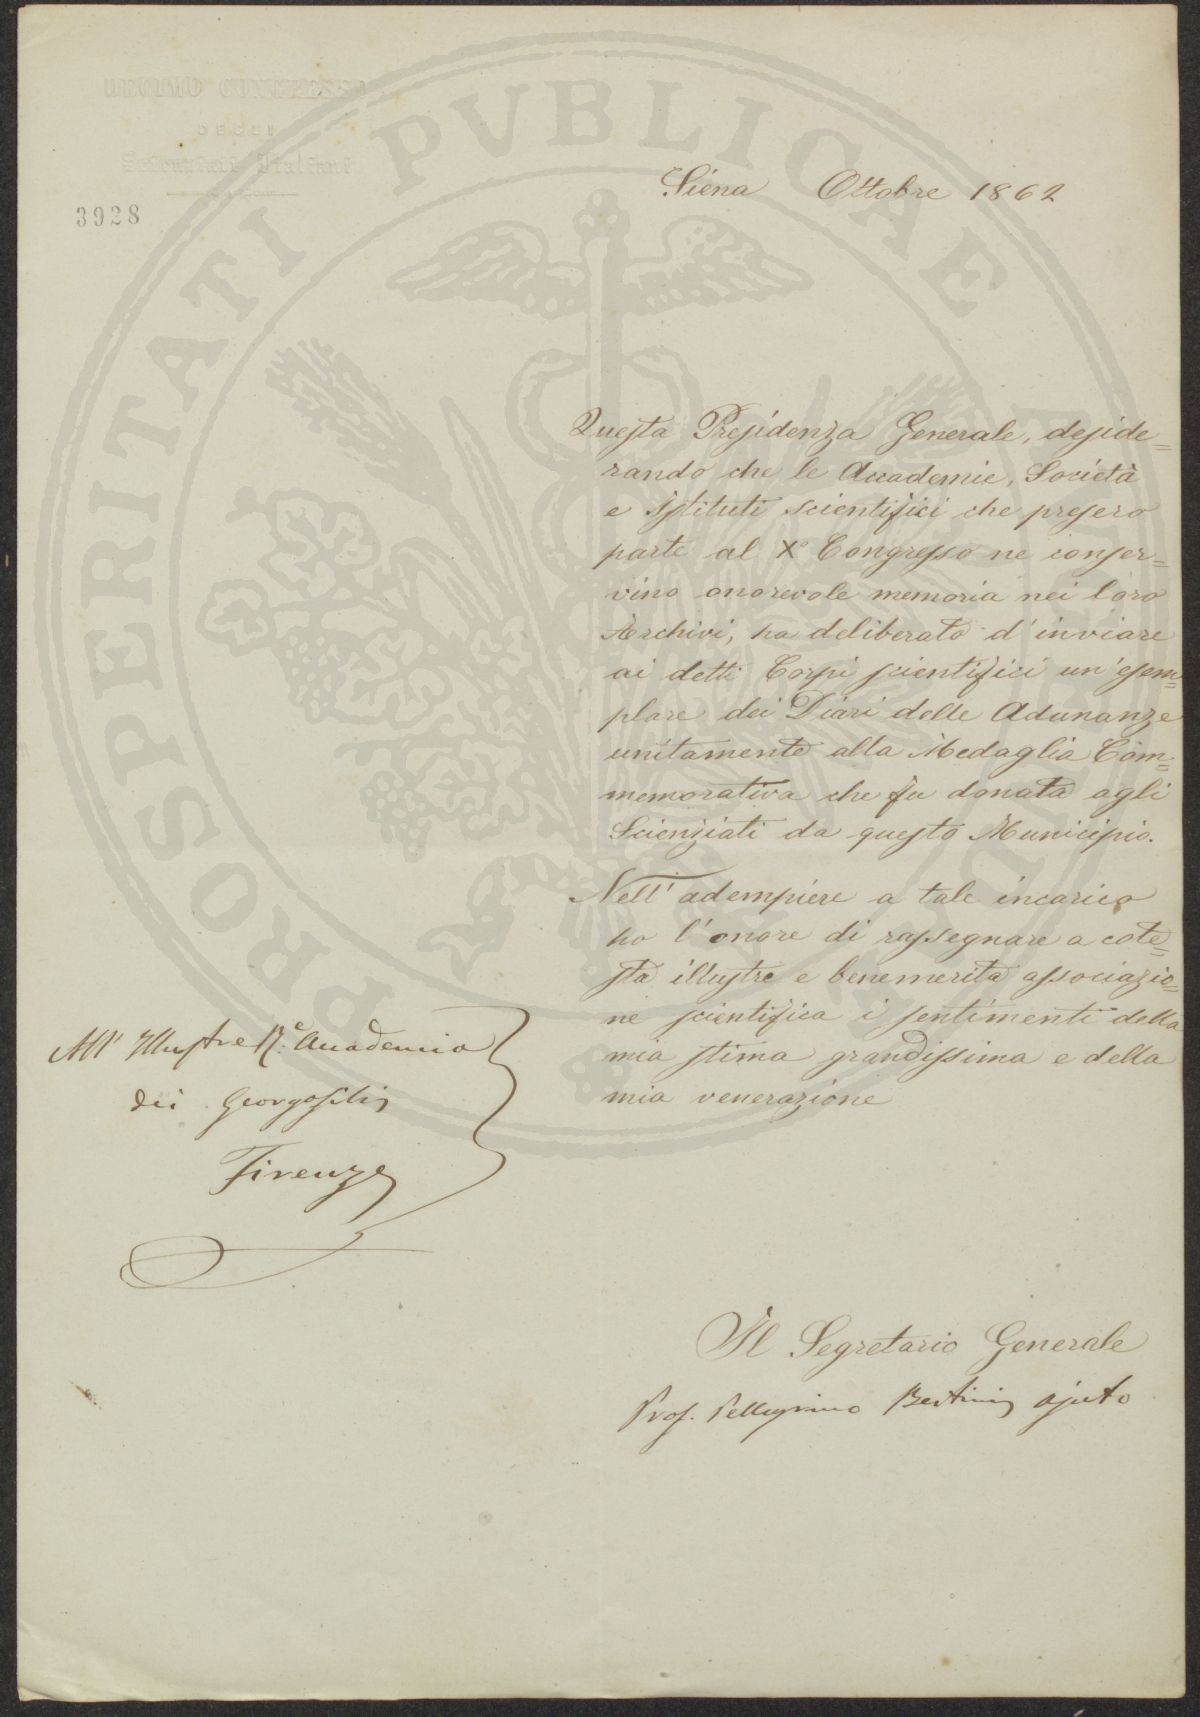 DECIMO CONGRESSO
DEGLI
Scienziati Italiani
3928
PROSPERITATI PVBLICAE
Siena Ottobre 1862
Questa Presidenza Generale, deside=
rando che le Accademie, Società
e Istituti scientifici che presero
parte al X° Congresso ne conser=
vino onorevole memoria nei loro
Archivi, ha deliberato d'inviare
ai detti Corpi scientifici un'esem=
plare dei Diari delle Adunanze
unitamente alla Medaglia Com=
memorativa che fu donata agli
Scienziati da questo Municipio.
Nell'adempiere a tale incarico
ho l'onore di rassegnare a cote=
sta illustre e benemerita associazio=
ne scientifica i sentimenti della
mia stima grandissima e della
mia venerazione
All'Illustre R.e Accademia
dei Georgofili
Firenze
Il Segretario Generale
Prof. Pellegrino Bertini ajuto